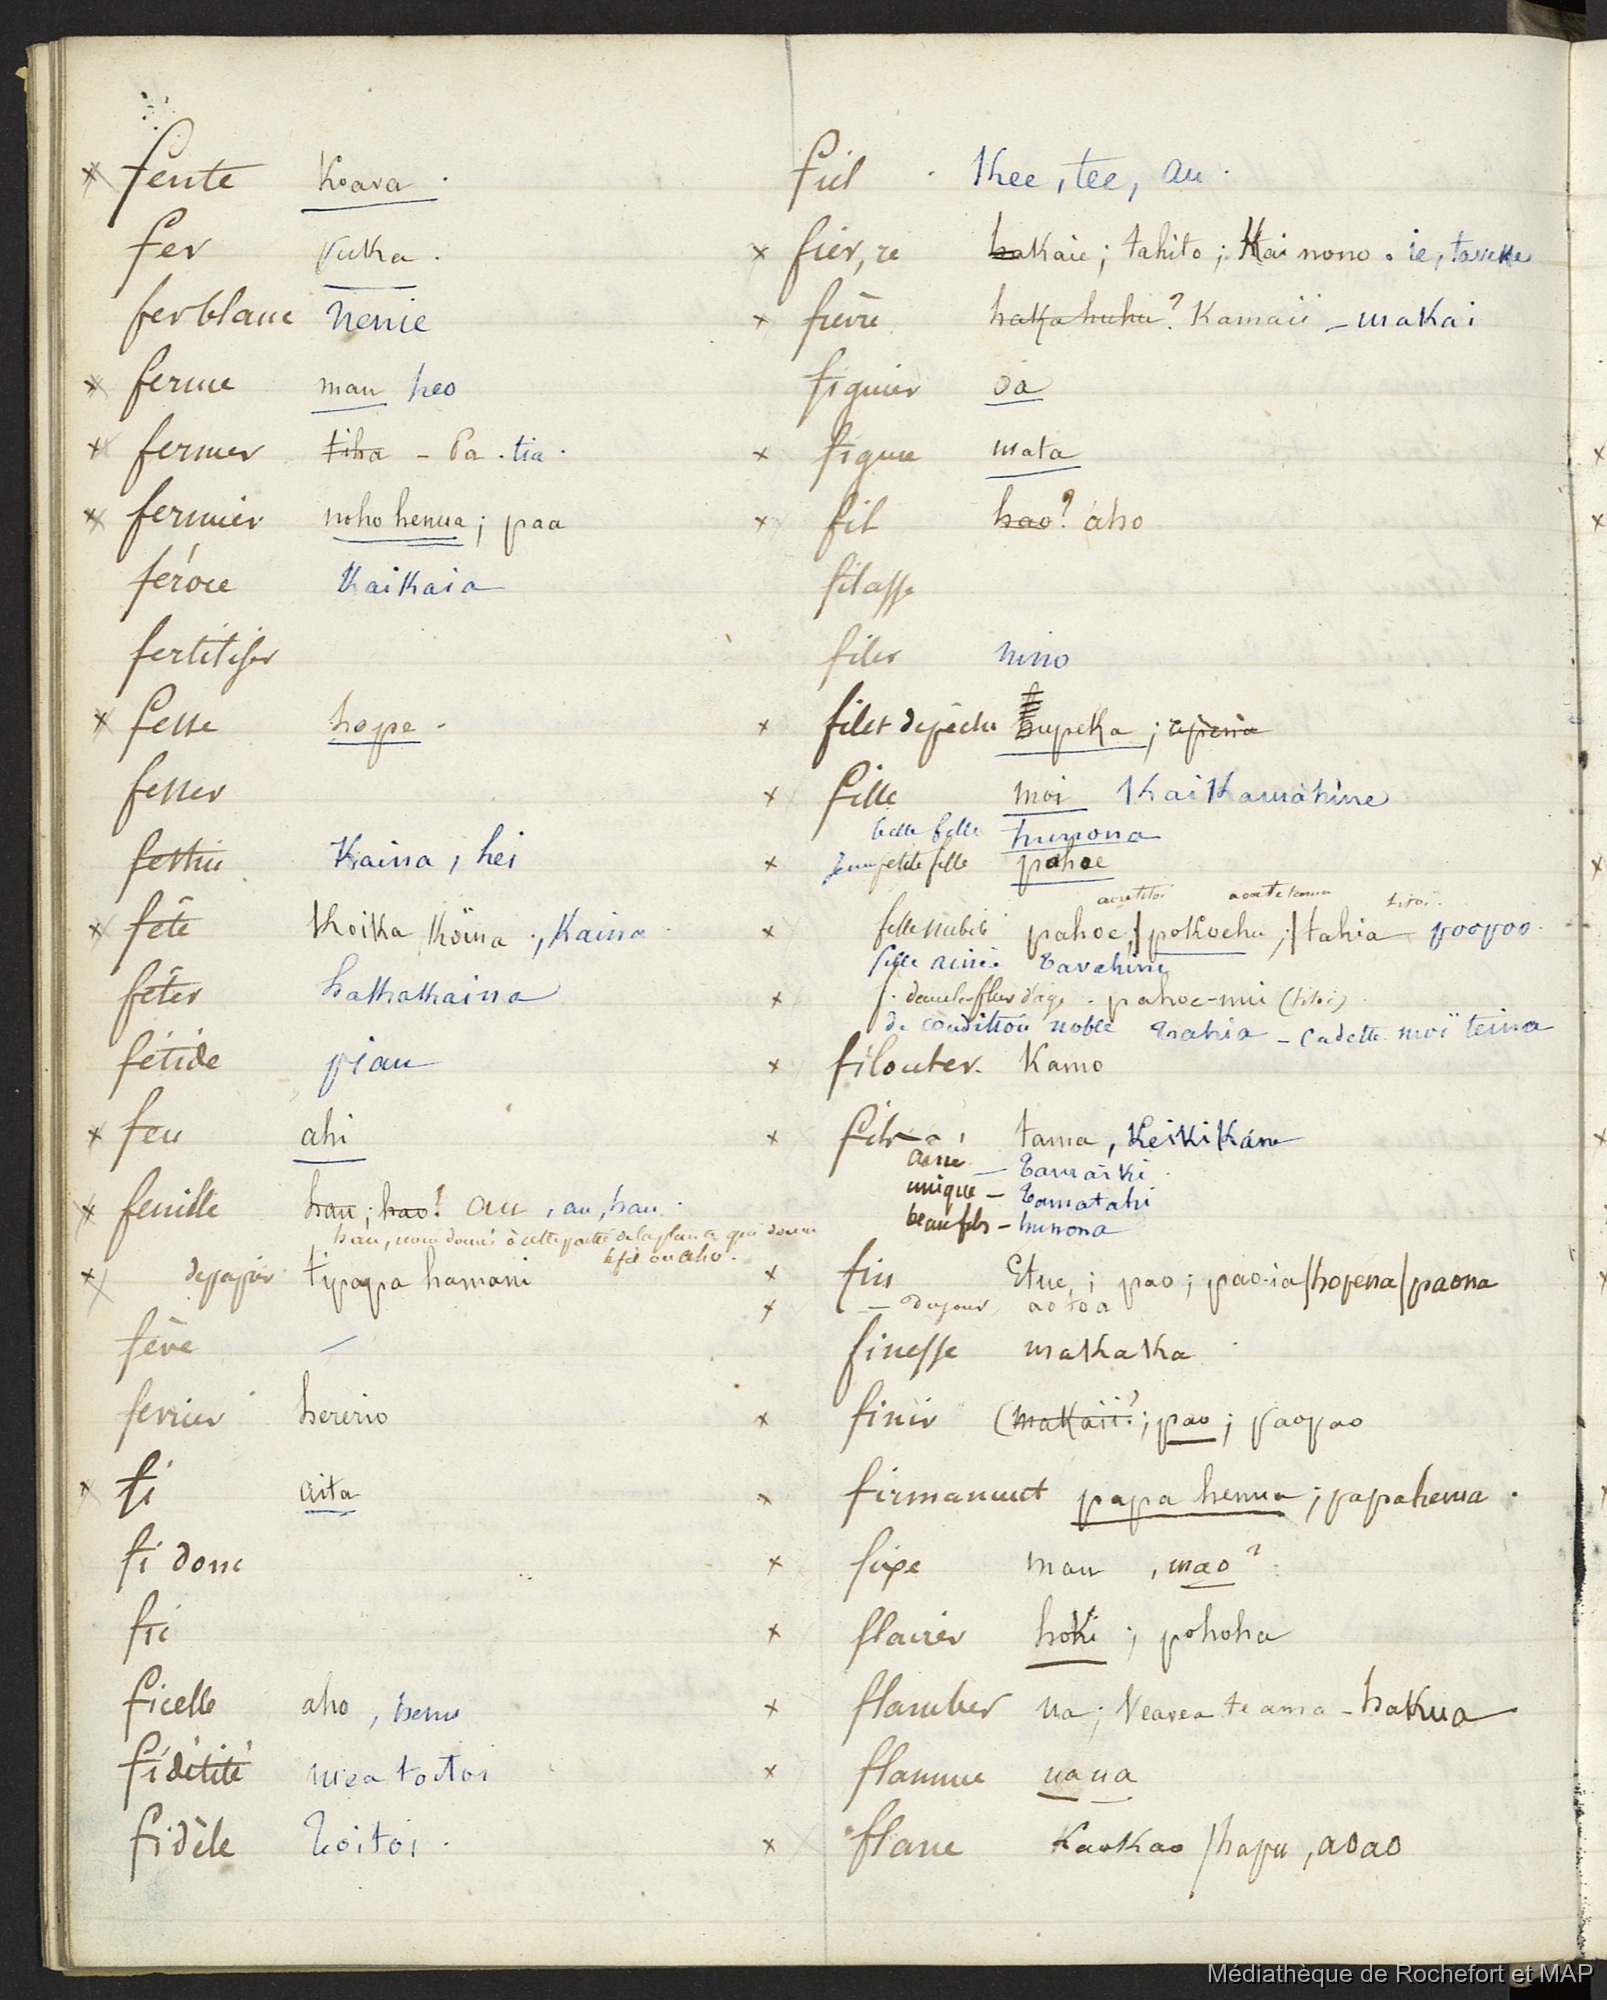 fente koava .
fer puka .
ferblanc nenie
ferme mau heo
fermer tiha - Pa . tia .
fermier noho henua ; paa
féroce kaikaia
fertiliser
fesse hope .
fesser
festin kaina , hei
fête koika , koïna . , kaina .
fêter hakakaina
fétide piau
feu ahi
feuille hau ; hao ? au , au , hau .
hau, nom donné à cette partie de la plante qui donne
le fil ou aho .
de papier tipapa hamani
fève
fevrier
fi aita
fi donc
fic
ficelle aho ,
fidélité mea toitoi
fidèle Toitoi .
fiel . kee , tee , au .
fier, re hakaie ; tahito ; kai nono . ie ,
fièvre haka huhu ? kamaii - makai
figuier oa
figure mata
fil hao ? áho
filasse
filer nino
filet de pêche hupeka ;
fille moi kaikamàhine
belle fille hunona
petite fille pahoe
fille nubile pahoe , / pokoehu ; / tahia poopoo .
fille ainée Tavahine
f. dans la fleur d'age . pahoe-nui (titoi)
de condition noble Tahia - Cadette moï teina
filouter . kamo
fils tama , keikikáne
ainé - Tamaiki .
unique - Tamatahi
beaufils - hunona
fin Etue ; pao ; pao-ia / hopena / paona
- du jour aotoa
finesse makaka .
finir ( makaii ? ; pao ; paopao
firmament papa henua ; papahenua .
fixe mau , mao ?
flairer hoki ; pohoha
flamber ua ; veavea te ama - hakua
flamme uaua
flanc kaokao / hapu , aoao
Médiathèque de Rochefort et MAP